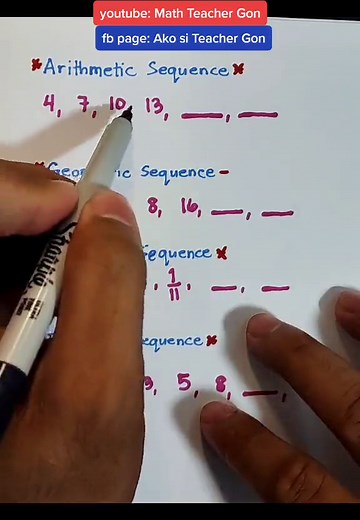 youtube: Math Teacher Gon
fb page: Ako si Teacher Gon
*Arithmetic Sequence*
4, 7, 10, 13, ___, ___
Sequence-
8, 16, ___, ___
, 1/11, ___, ___
5, 8, ___,
Sharpie